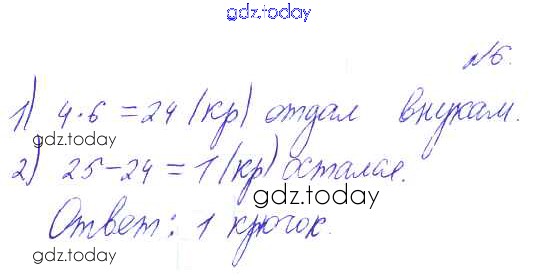 gdz.today
№6.
1) 4·6=24 (кр) отдал внукам.
gdz.today
2) 25-24=1 (кр) осталось.
gdz.today
Ответ: 1 крючок.
gdz.today